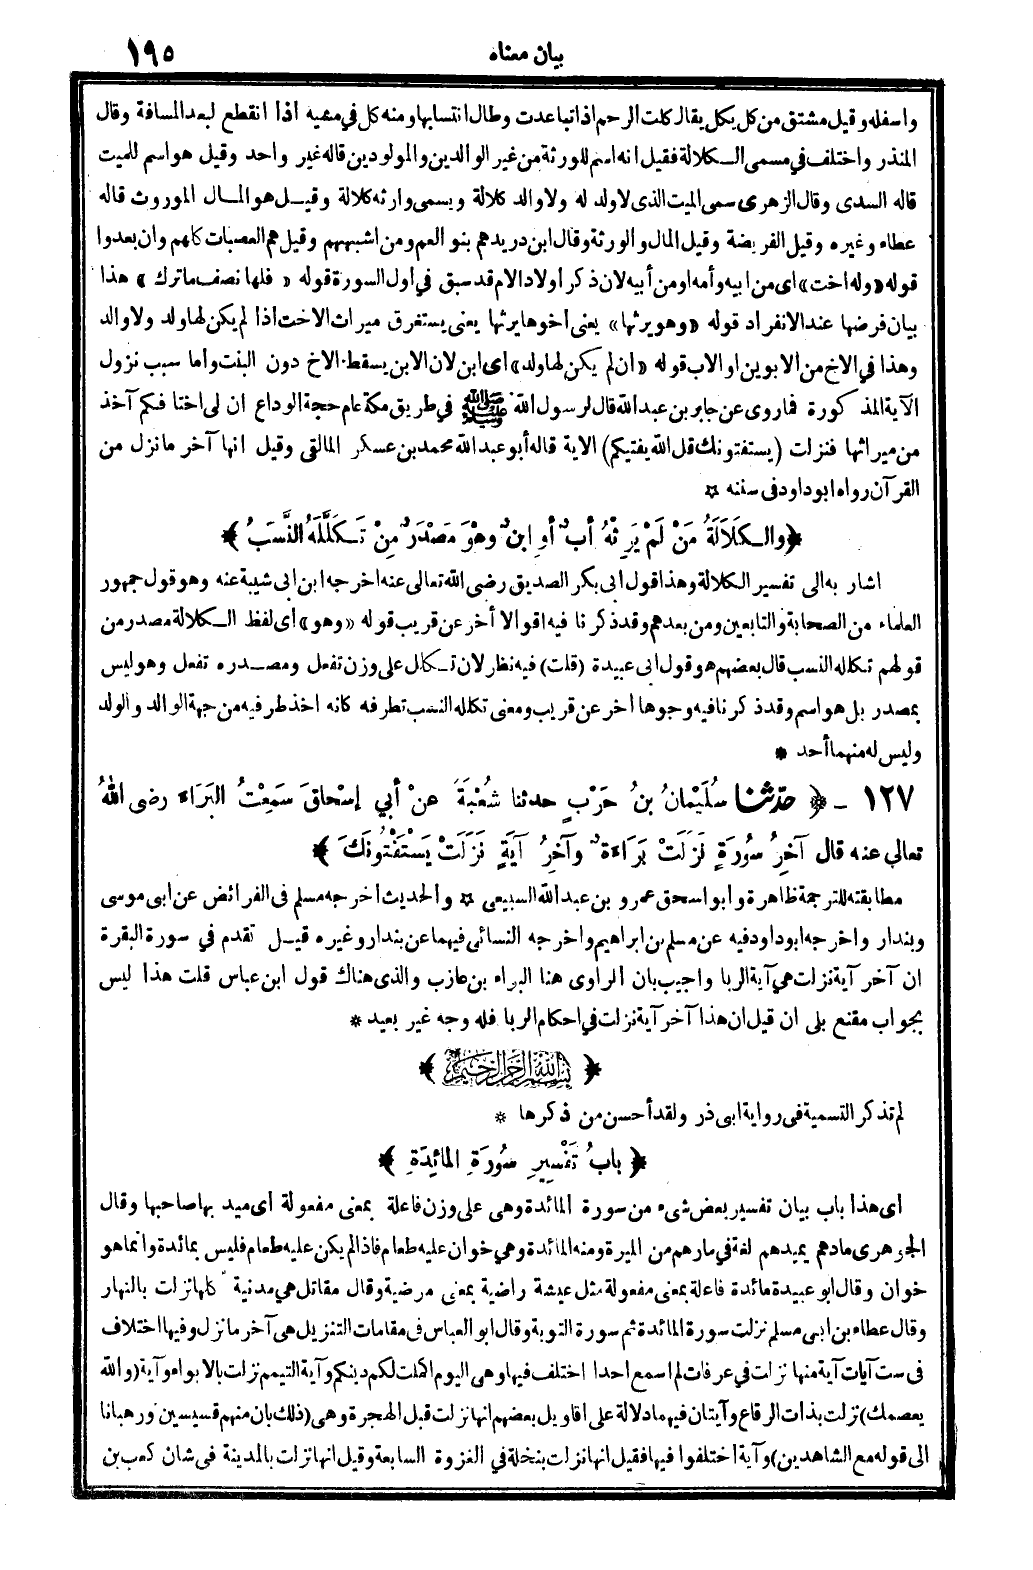 بيان معناه
١٩٥
واسفله وقيل مشتق من كل يكل يقال كلت الرحم اذا تباعدت وطال انتسابها ومنه كل في مشيه اذا انقطع لبعد المسافة وقال
المنذر واختلف في مسمى الكلالة فقيل انه اسم للورثة من غير الوالدين والمولودين قاله غير واحد وقيل هو اسم للميت
قاله السدى وقال الزهرى سمى الميت الذى لا ولد له ولا والد كلالة ويسمى وارثه كلالة وقيل هو المال الموروث قاله
عطاء وغيره وقيل الفريضة وقيل المال والورثة وقال ابن دريد هم بنو العم ومن اشبههم وقيل هم العصبات كلهم وان بعدوا
قوله «وله اخت» اى من ابيه وأمه او من أبيه لان ذكر اولاد الام قد سبق في اول السورة قوله «فلها نصف ما ترك» هذا
بيان فرضها عند الانفراد قوله «وهو يرثها» يعنى اخوها يرثها يعنى يستغرق ميراث الاخت اذا لم يكن لها ولد ولا والد
وهذا في الاخ من الابوين او الاب قوله «ان لم يكن لها ولد» اى ابن لان الابن يسقط الاخ دون البنت واما سبب نزول
الآية المذكورة فما روى عن جابر بن عبد الله قال لرسول الله ﷺ في طريق مكة عام حجة الوداع ان لى اختا فكم آخذ
من ميراثها فنزلت (يستفتونك قل الله يفتيكم) الاية قاله أبو عبد الله محمد بن عسكر المالقى وقيل انها آخر ما نزل من
القرآن رواه ابو داود فى سننه ✩
﴿والكَلَالَةُ مَنْ لَمْ يَرِثْهُ أبٌ أوِ ابنٌ وهْوَ مَصْدَرٌ مِنْ تَكَلَّلَهُ النَّسَبُ﴾
اشار به الى تفسير الكلالة وهذا قول ابى بكر الصديق رضى الله تعالى عنه اخرجه ابن ابى شيبة عنه وهو قول جمهور
العلماء من الصحابة والتابعين ومن بعدهم وقد ذكرنا فيه اقوالا أخر عن قريب قوله «وهو» اى لفظ الكلالة مصدر من
قولهم تكلله النسب قال بعضهم هو قول ابى عبيدة (قلت) فيه نظر لان تكلل على وزن تفعل ومصدره تفعل وهو ليس
بمصدر بل هو اسم وقد ذكرنا فيه وجوها أخر عن قريب ومعنى تكلله النسب تطرفه كانه اخذ طرفيه من جهة الوالد والولد
وليس له منهما أحد *
١٢٧ - ﴿حدّثنا سُلَيْمانُ بنُ حَرْبٍ حدثنا شُعْبَةُ عنْ أبي إسْحاقَ سَمِعْتُ البَرَاءَ رضى اللهُ
تعالى عنه قال آخِرُ سُورَةٍ نَزَلَتْ بَرَاءَةٌ وآخِرُ آيَةٍ نَزَلَتْ يَسْتَفْتُونَكَ﴾
مطابقته للترجمة ظاهرة وابو اسحق عمرو بن عبد الله السبيعى ✩ والحديث اخرجه مسلم فى الفرائض عن ابى موسى
وبندار واخرجه ابو داود فيه عن مسلم بن ابراهيم واخرجه النسائى فيهما عن بندار وغيره قيل تقدم في سورة البقرة
ان آخر آية نزلت هي آية الربا واجيب بان الراوى هنا البراء بن عازب والذى هناك قول ابن عباس قلت هذا ليس
بجواب مقنع بلى ان قيل ان هذا آخر آية نزلت في احكام الربا فله وجه غير بعيد *
﴿بسم الله الرحمن الرحيم﴾
لم تذكر التسمية فى رواية ابى ذر ولقد أحسن من ذكرها *
﴿بابُ تَفْسِيرِ سُورَةِ المائِدَةِ﴾
اى هذا باب بيان تفسير بعض شىء من سورة المائدة وهى على وزن فاعلة بمعنى مفعولة اى ميد بها صاحبها وقال
الجوهرى مادهم يميدهم لغة في مارهم من الميرة ومنه المائدة وهي خوان عليه طعام فاذا لم يكن عليه طعام فليس بمائدة وانما هو
خوان وقال ابو عبيدة مائدة فاعلة بمعنى مفعولة مثل عيشة راضية بمعنى مرضية وقال مقاتل هي مدنية كلها نزلت بالنهار
وقال عطاء بن ابى مسلم نزلت سورة المائدة ثم سورة التوبة وقال ابو العباس فى مقامات التنزيل هى آخر ما نزل وفيها اختلاف
فى ست آيات آية منها نزلت في عرفات لم اسمع احدا اختلف فيها وهى اليوم اكملت لكم دينكم وآية التيمم نزلت بالابواء وآية (والله
يعصمك) نزلت بذات الرقاع وآيتان فيهما دلالة على اقاويل بعضهم انها نزلت قبل الهجرة وهى (ذلك بان منهم قسيسين ورهبانا
الى قوله مع الشاهدين) وآية اختلفوا فيها فقيل انها نزلت بنخلة في الغزوة السابعة وقيل انها نزلت بالمدينة فى شان كعب بن